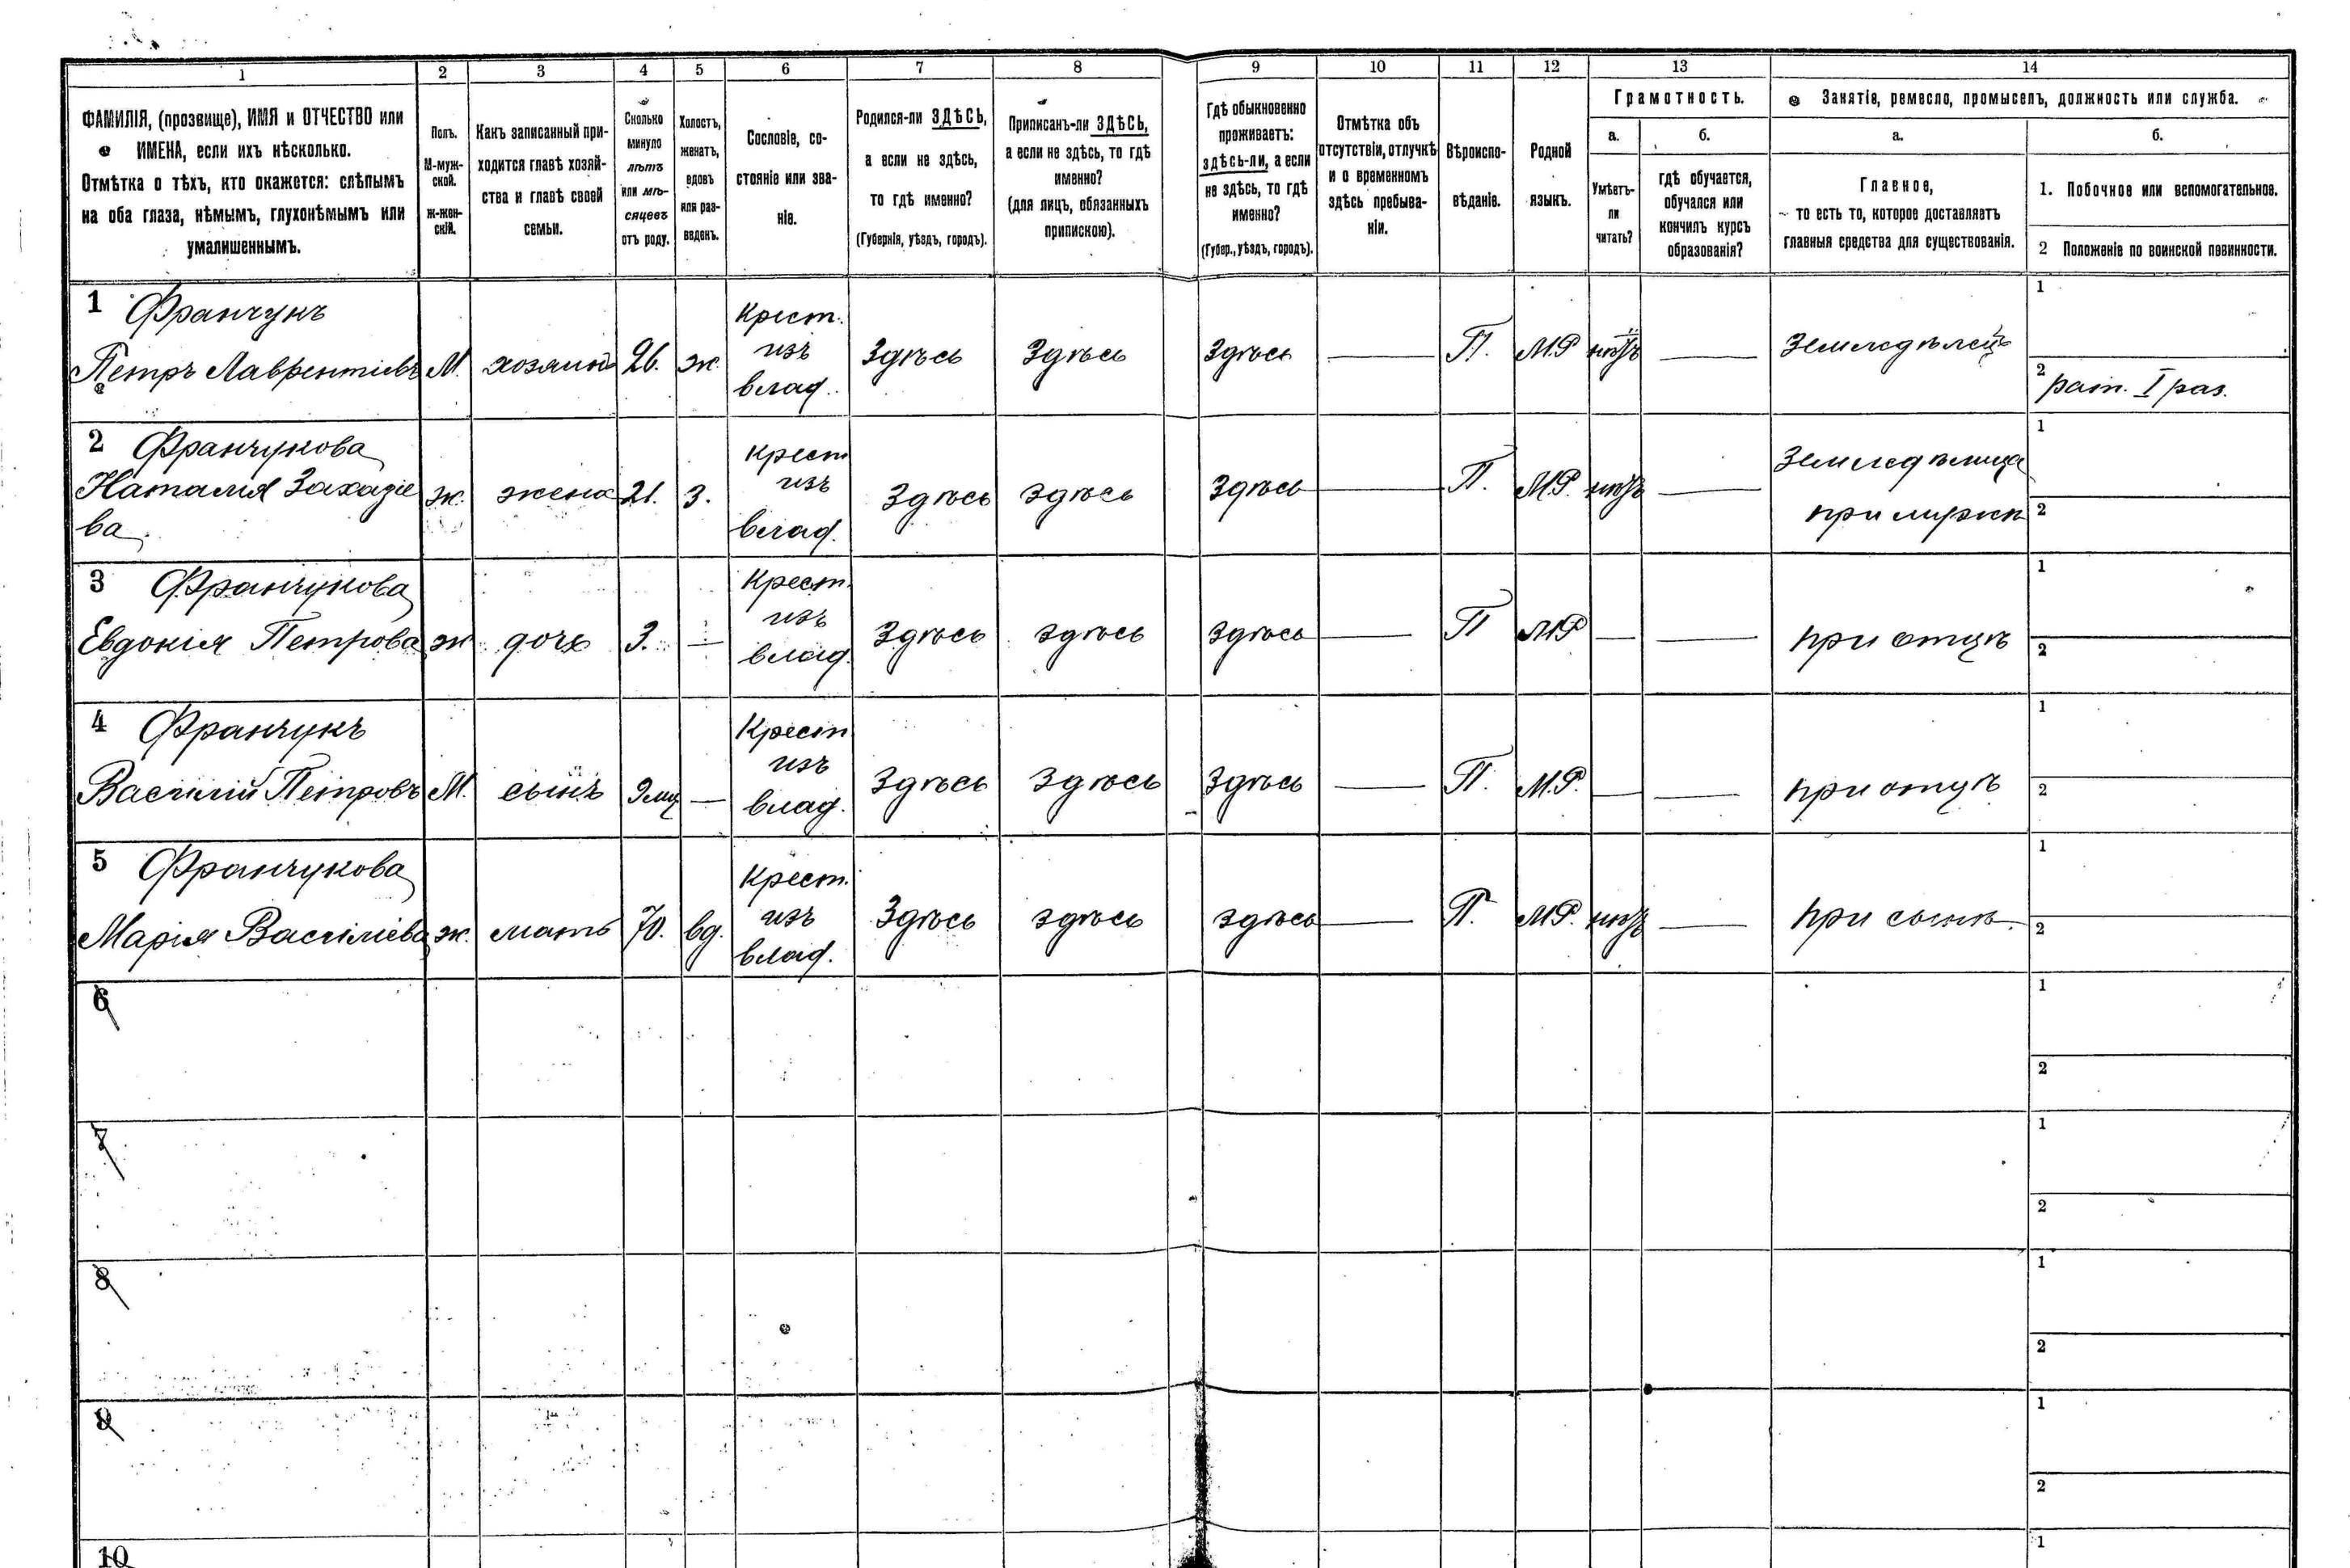 1 2 3 4 5 6 7 8 9 10 11 12 13 14
ФАМИЛІЯ, (прозвище), ИМЯ и ОТЧЕСТВО или
ИМЕНА, если ихъ нѣсколько.
Отмѣтка о тѣхъ, кто окажется: слѣпымъ
на оба глаза, нѣмымъ, глухонѣмымъ или
умалишеннымъ.
Полъ.
М-муж-
ской.
ж-жен-
скій.
Какъ записанный при-
ходится главѣ хозяй-
ства и главѣ своей
семьи.
Сколько
минуло
лѣтъ
или мѣ-
сяцевъ
отъ роду.
Холостъ,
женатъ,
вдовъ
или раз-
веденъ.
Сословіе, со-
стояніе или зва-
ніе.
Родился-ли ЗДѢСЬ,
а если не здѣсь,
то гдѣ именно?
(Губернія, уѣздъ, городъ).
Приписанъ-ли ЗДѢСЬ,
а если не здѣсь, то гдѣ
именно?
(для лицъ, обязанныхъ
припискою).
Гдѣ обыкновенно
проживаетъ:
здѣсь-ли, а если
не здѣсь, то гдѣ
именно?
(Губер., уѣздъ, городъ).
Отмѣтка объ
отсутствіи, отлучкѣ
и о временномъ
здѣсь пребыва-
ніи.
Вѣроиспо-
вѣданіе.
Родной
языкъ.
Грамотность.
а.
Умѣетъ-
ли
читать?
б.
гдѣ обучается,
обучался или
кончилъ курсъ
образованія?
Занятіе, ремесло, промыселъ, должность или служба.
а.
Главное,
то есть то, которое доставляетъ
главныя средства для существованія.
б.
1. Побочное или вспомогательное.
2 Положеніе по воинской повинности.
1 Франчукъ
Петръ Лаврентіевъ
М.
хозяинъ
26.
ж.
Крест.
изъ
влад.
Здѣсь
Здѣсь
Здѣсь
—
П.
М.Р
нѣтъ
—
Земледѣлецъ
1
2 рат. I раз.
2 Франчукова
Наталія
ва
ж.
жена
21.
з.
Крест
изъ
влад.
Здѣсь
здѣсь
Здѣсь
—
П.
М.Р.
нѣтъ
—
при мужѣ
1
2
3 Франчукова
Евдокія Петрова
ж
дочь
3.
—
Крест.
изъ
влад.
Здѣсь
здѣсь
Здѣсь
—
П
МР
—
—
при отцѣ
1
2
4 Франчукъ
Василій Петровъ
М.
сынъ
—
Крест
изъ
влад.
Здѣсь
Здѣсь
Здѣсь
—
П.
М.Р.
—
—
при отцѣ
1
2
5 Франчукова
Марія Василіева
ж.
мать
70.
вд.
Крест.
изъ
влад.
Здѣсь
здѣсь
здѣсь
—
П.
М.Р.
нѣтъ
—
при сынѣ.
1
2
6
1
2
7
1
2
8
1
2
9
1
2
10
1